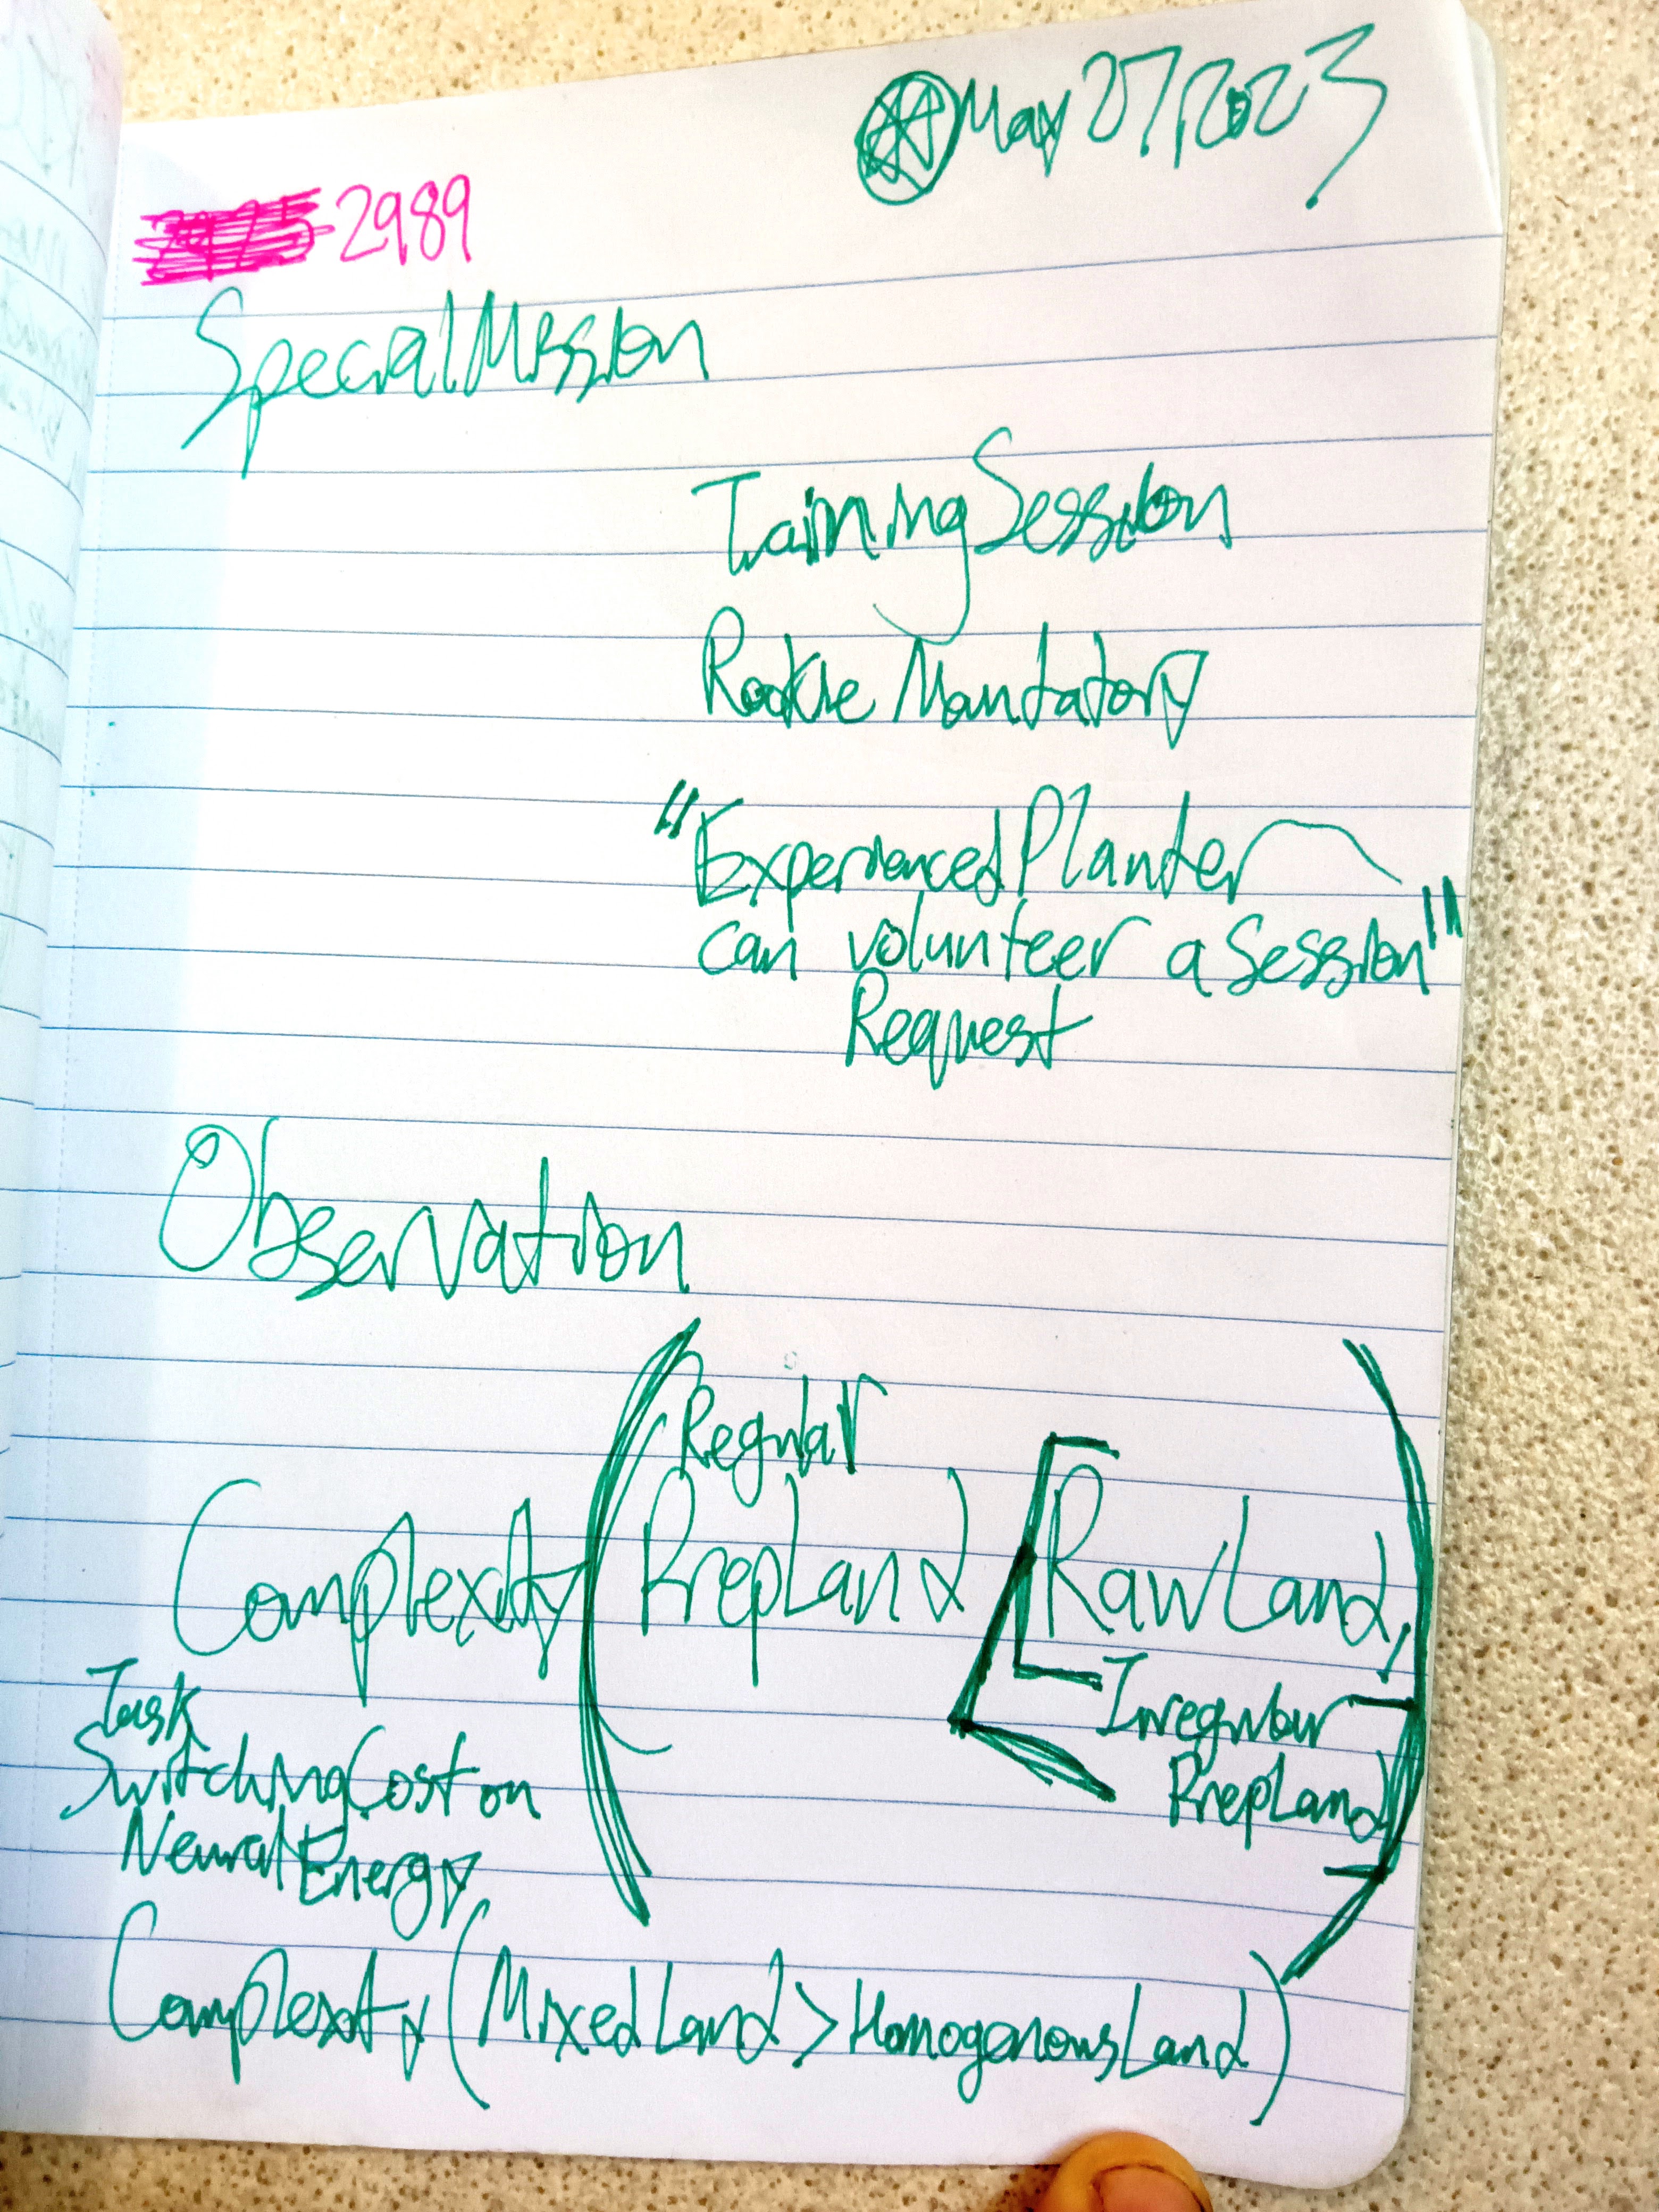 May 27, 2023
2989
Special Mission
Training Session
Rookie Mandatory
"Experienced Planter
can volunteer a Session"
Request
Observation
Regular
Complexity ( PrepLand < [ RawLand,
Irregular
PrepLand
Task
Switching Cost on
Neural Energy
Complexity (MixedLand > HomogenousLand)